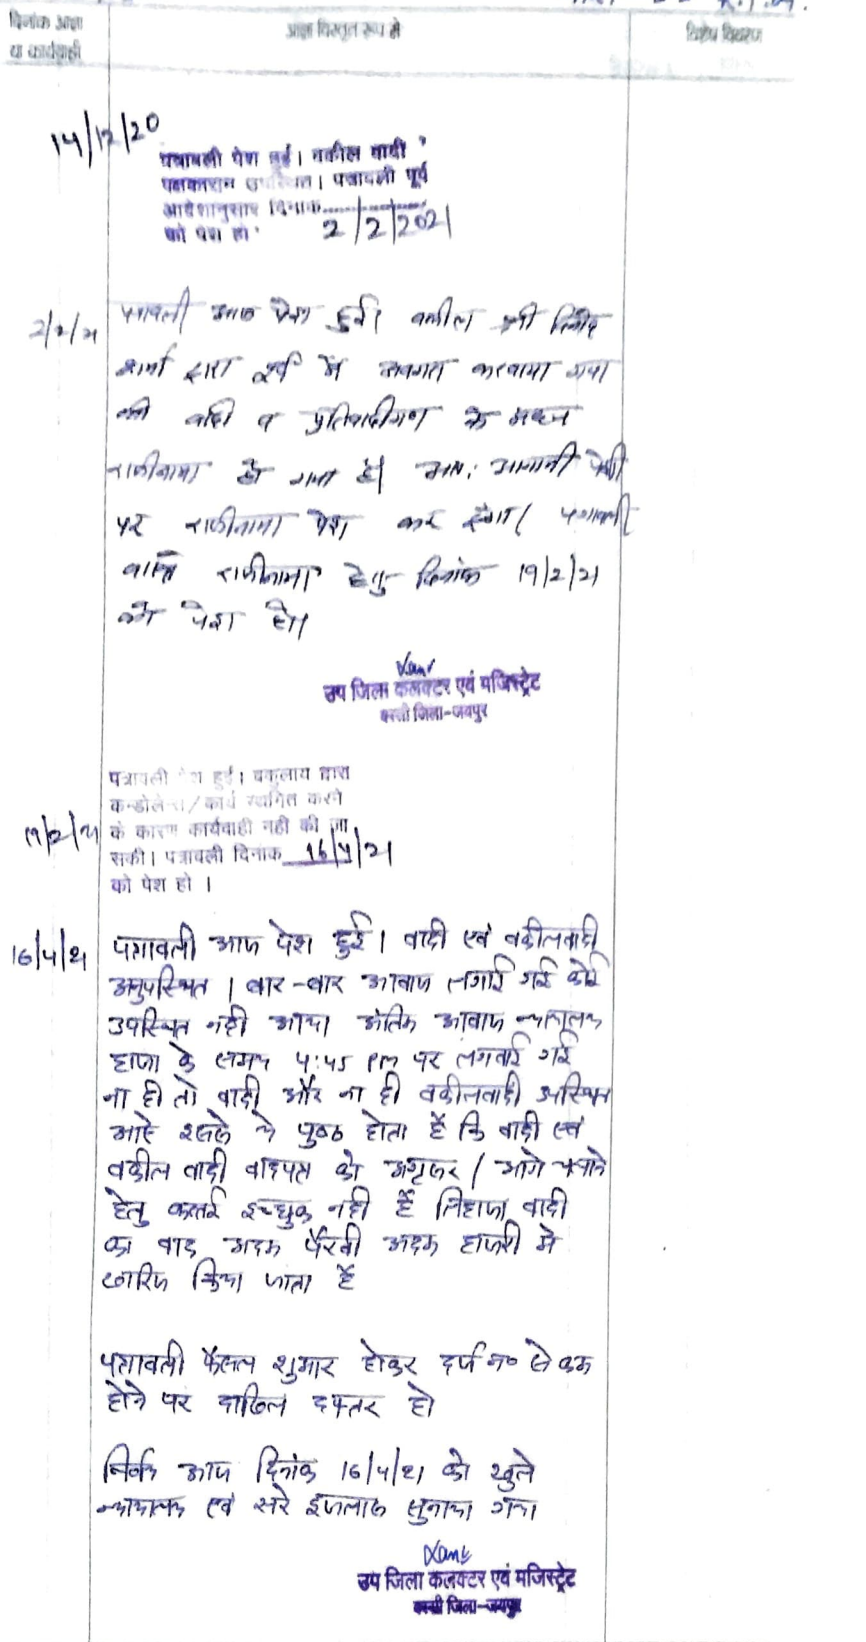 दिनांक आज्ञा
या कार्यवाही
आज्ञा विस्तृत रूप में
विशेष विवरण
14/12/20
पत्रावली पेश हुई। वकील वादी
पक्षकारान उपस्थित। पत्रावली पूर्व
आदेशानुसार दिनांक 2/2/2021
को पेश हो
2/2/21
पत्रावली आज पेश हुई। वकील श्री विनोद
शर्मा द्वारा पूर्व में अवगत करवाया गया
की वादी व प्रतिवादीगण के मध्य
राजीनामा हो गया है। अतः आगामी पेशी
पर राजीनामा पेश कर देगा। पत्रावली
वास्ते राजीनामा हेतु दिनांक 19/2/21
को पेश हो।
उप जिला कलक्टर एवं मजिस्ट्रेट
बस्सी जिला-जयपुर
19/2/21
पत्रावली पेश हुई। वकुलाय द्वारा
कन्डोलेन्स/कार्य स्थगित करने
के कारण कार्यवाही नही की जा
सकी। पत्रावली दिनांक 16/4/21
को पेश हो ।
16/4/21
पत्रावली आज पेश हुई। वादी एवं वकीलवादी
अनुपस्थित । बार-बार आवाज लगाई गई कोई
उपस्थित नही आया अंतिम आवाज न्यायालय
हाजा के समय 4:45 PM पर लगवाई गई
ना ही तो वादी और ना ही वकीलवादी उपस्थित
आऐ इससे ये होता है कि वादी एवं
वकील वादी वादपत्र को अग्रसर / आगे चलाने
हेतु कतई इच्छुक नही है लिहाजा वादी
का वाद अदम पैरवी अदम हाजरी में
खारिज किया जाता है
पत्रावली फैसल शुमार होकर दर्ज न० से कम
होने पर दाखिल दफ्तर हो
निर्णय आज दिनांक 16/4/21 को खुले
न्यायालय एवं सरे इजलास सुनाया गया
उप जिला कलक्टर एवं मजिस्ट्रेट
बस्सी जिला-जयपुर